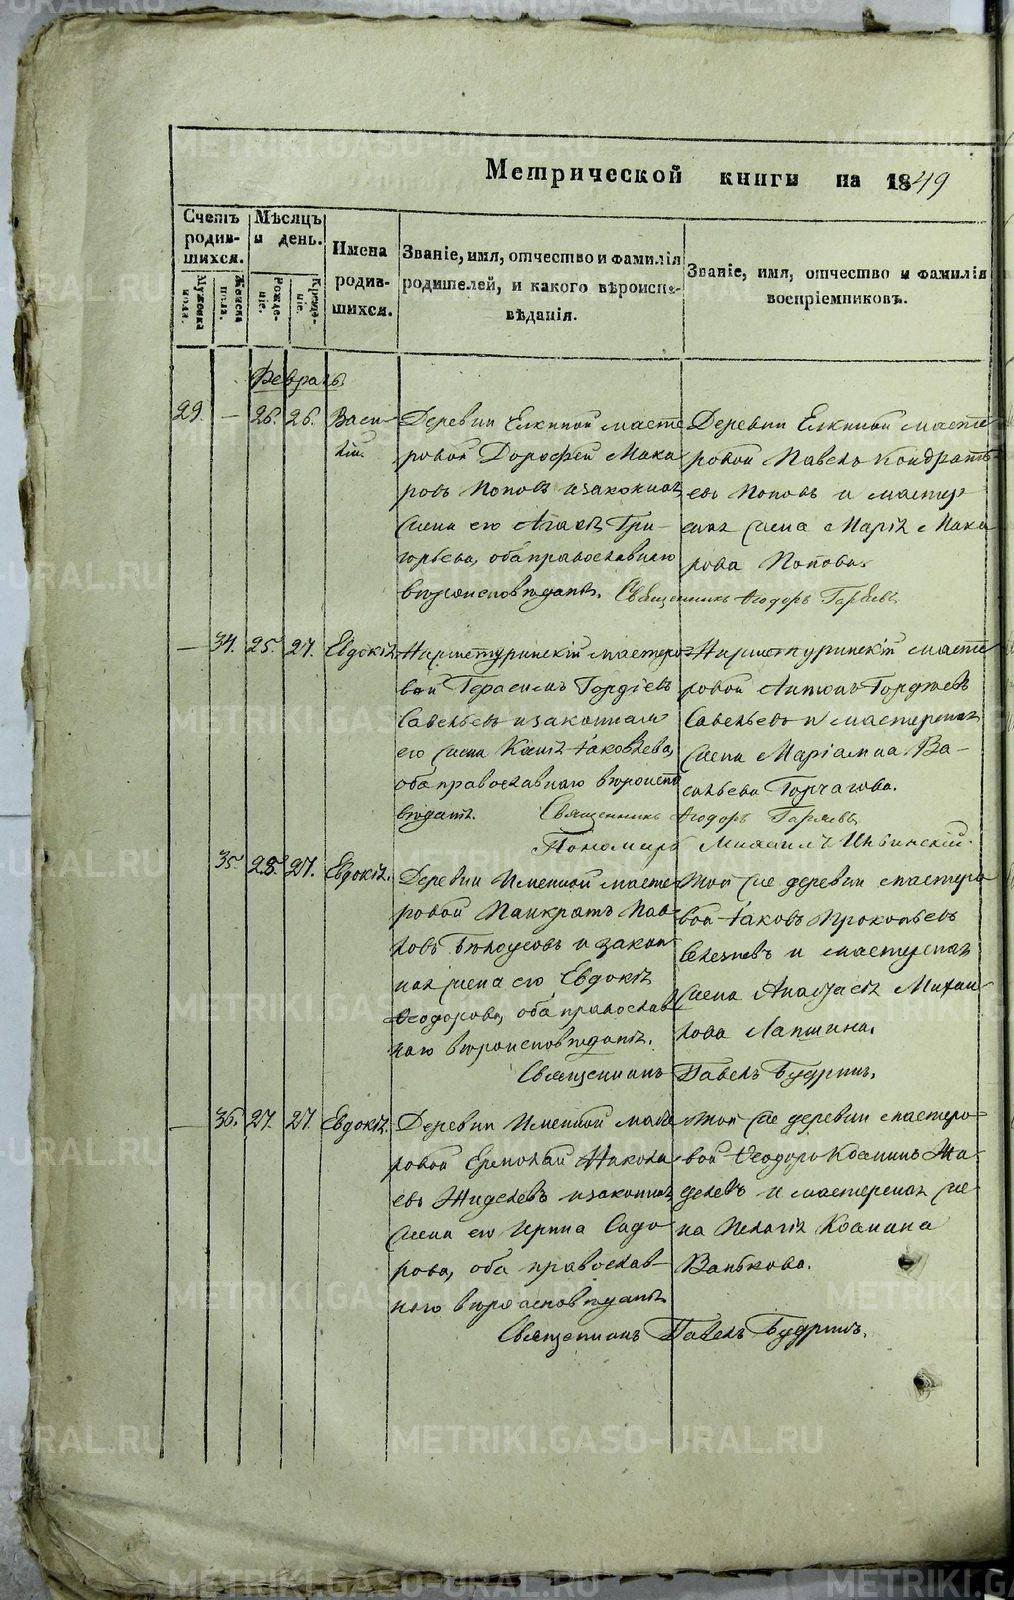 Метрической книги на 1849
Счетъ родив-шихся.
Мужеска пола.
Женска пола.
Мѣсяцъ и день.
Рожде-ніе.
Креще-ніе.
Имена родив-шихся.
Званіе, имя, отчество и фамилія родителей, и какого вѣроиспо-вѣданія.
Званіе, имя, отчество и фамилія воспріемниковъ.
Февраль
29. — 26. 26. Васи-лій.
Деревни Елкиной масте
ровой Дорофей Мака
ровъ Поповъ и законная
жена его Агаѳія Гри-
горьева, оба православнаго
вѣроисповѣданія.
Деревни Елкиной масте
ровой Павелъ Кондрать-
евъ Поповъ и мастер-
ская жена Марія Мака
рова Попова.
Священникъ Ѳеодоръ Гаряевъ
— 34. 25. 27. Евдокія.
Нижнетуринскій мастеро-
вой Герасимъ Гордѣевъ
Савельевъ и законная
его жена Ксенія Іаковлева,
оба православнаго вѣроиспо
вѣданія.
Нижнетуринскій масте
ровой Антонъ Гордѣевъ
Савельевъ и мастерская
жена Маріамна Ва-
сильева Горчагова.
Священникъ Ѳеодоръ Гаряевъ
Пономарь Михаилъ
35. 25. 27. Евдокія.
Деревни Именной масте-
ровой Панкратъ Пав-
ловъ Бѣлоусовъ и закон
ная жена его Евдокія
Ѳеодорова, оба православ
наго вѣроисповѣданія.
Той же деревни мастеро
вой Іаковъ Прокопьевъ
Селезневъ и мастерская
жена Анастасія Михаи
лова Лапшина.
Священникъ Павелъ Будринъ.
— 36. 27. 27. Евдокія.
Деревни Именной масте
ровой Ермолай Никола
евъ Жиделевъ и законная
жена его Ирина Сидо
рова, оба православ-
наго вѣроисповѣданія
Той же деревни мастеро-
вой Ѳеодоръ Козминъ Жи-
делевъ и мастерская же-
на Пелагія Козмина
Ванькова.
Священникъ Павелъ Будринъ.
METRIKI.GASO-URAL.RU